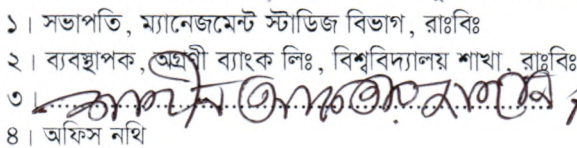 ১। সভাপতি, ম্যানেজমেন্ট স্টাডিজ বিভাগ, রাঃবিঃ
২। ব্যবস্থাপক, অগ্রণী ব্যাংক লিঃ, বিশ্ববিদ্যালয় শাখা, রাঃবিঃ
৩।
৪। অফিস নথি